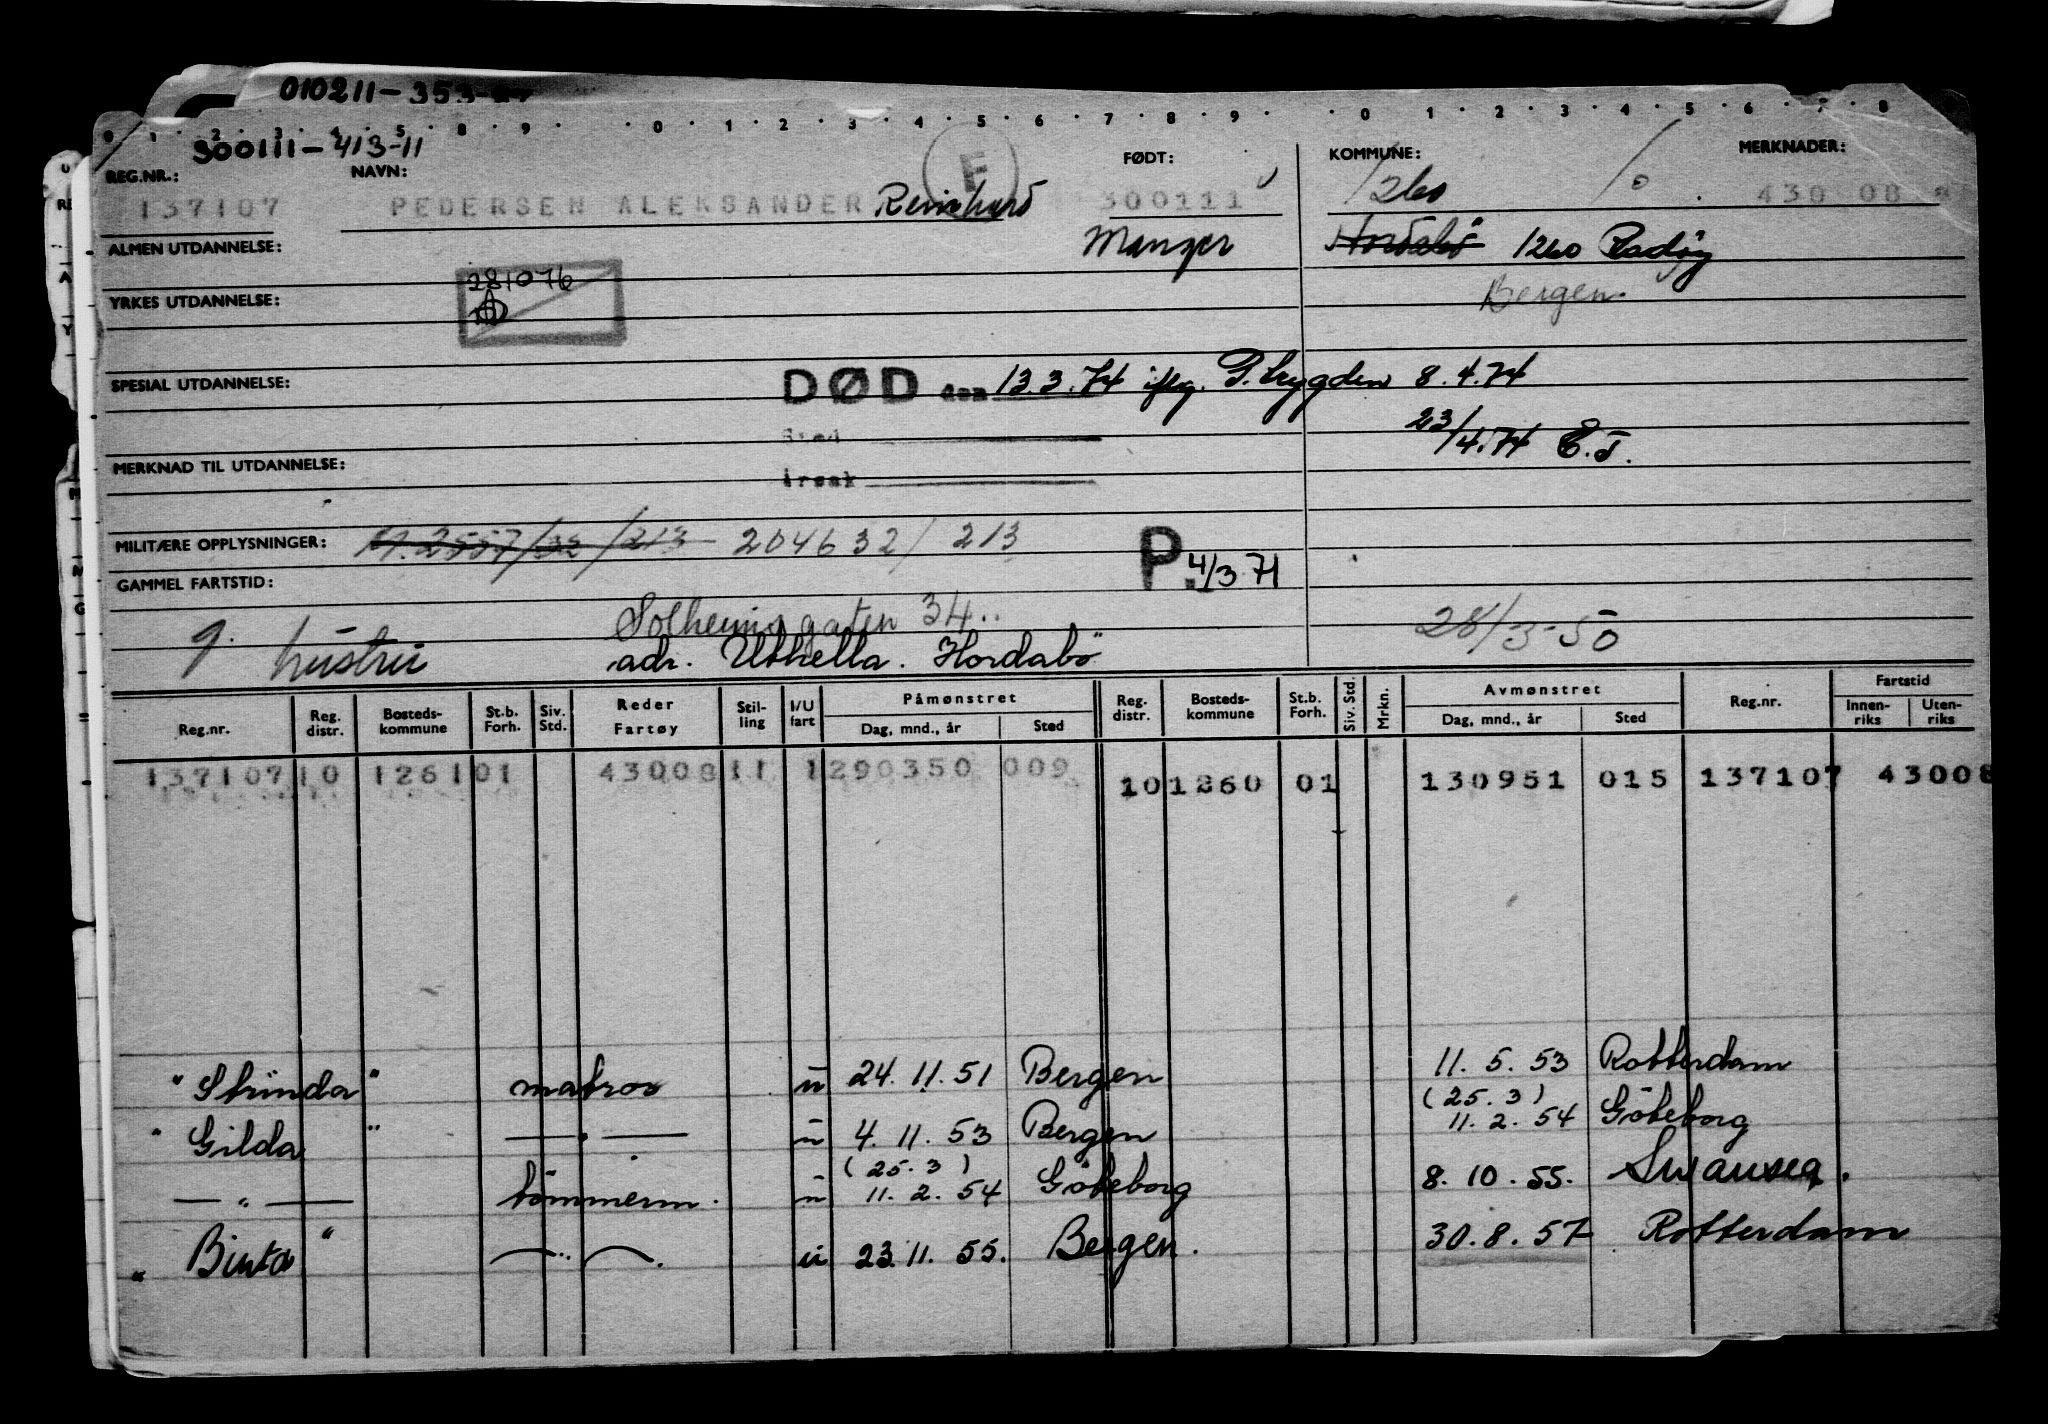 010211-353-
300111-413-11
0 1 2 3 4 5 8 9 0 1 2 3 4 5 6 7 8 9 0 1 2 3 4 5 6 7 8
REG.NR.: NAVN: F FØDT: KOMMUNE: MERKNADER:
137107 PEDERSEN ALEKSANDER Reinhard 300111 1260 430 08
ALMEN UTDANNELSE: Manger Hordabö 1260 Radøy
281076
YRKES UTDANNELSE: Bergen.
SPESIAL UTDANNELSE: DØD den 13.3.74 iflg. P. trygden 8.4.74
Sted 23/4.74 E.T.
MERKNAD TIL UTDANNELSE: Årsak
MILITÆRE OPPLYSNINGER: M.2557/32/213 204632/213 P. 4/3 71
GAMMEL FARTSTID:
Solheimsgaten 34.. 28/3-50
g. hustru adr. Uthella. Hordabö
Reg.nr. Reg. distr. Bosteds-kommune St.b. Forh. Siv. Std. Reder Fartøy Stil-ling I/U fart Påmønstret Dag, mnd., år Sted Reg. distr. Bosteds-kommune St.b. Forh. Siv. Std. Mrkn. Avmønstret Dag, mnd., år Sted Reg.nr. Fartstid Innen-riks Uten-riks
137107 10 1261 01 43008 11 1 290350 009 10 1260 01 130951 015 137107 43008
"Strinda" matros u 24.11.51 Bergen 11.5.53 Rotterdam
"Gilda" —"— u 4.11.53 Bergen (25.3) 11.2.54 Göteborg
—"— tömmerm. u (25.3) 11.2.54 Göteborg 8.10.55. Swansea.
"Binta" —"— u 23.11.55. Bergen. 30.8.57 Rotterdam